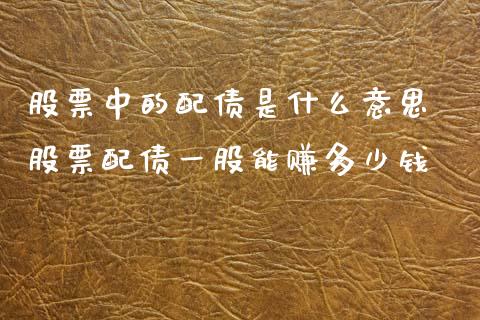 股票中的配债是什么意思
股票配债一股能赚多少钱